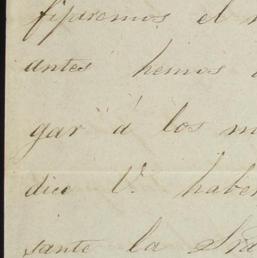 fijaremos el
antes hemos
gar á los m
dice V. haber
sante la Sra